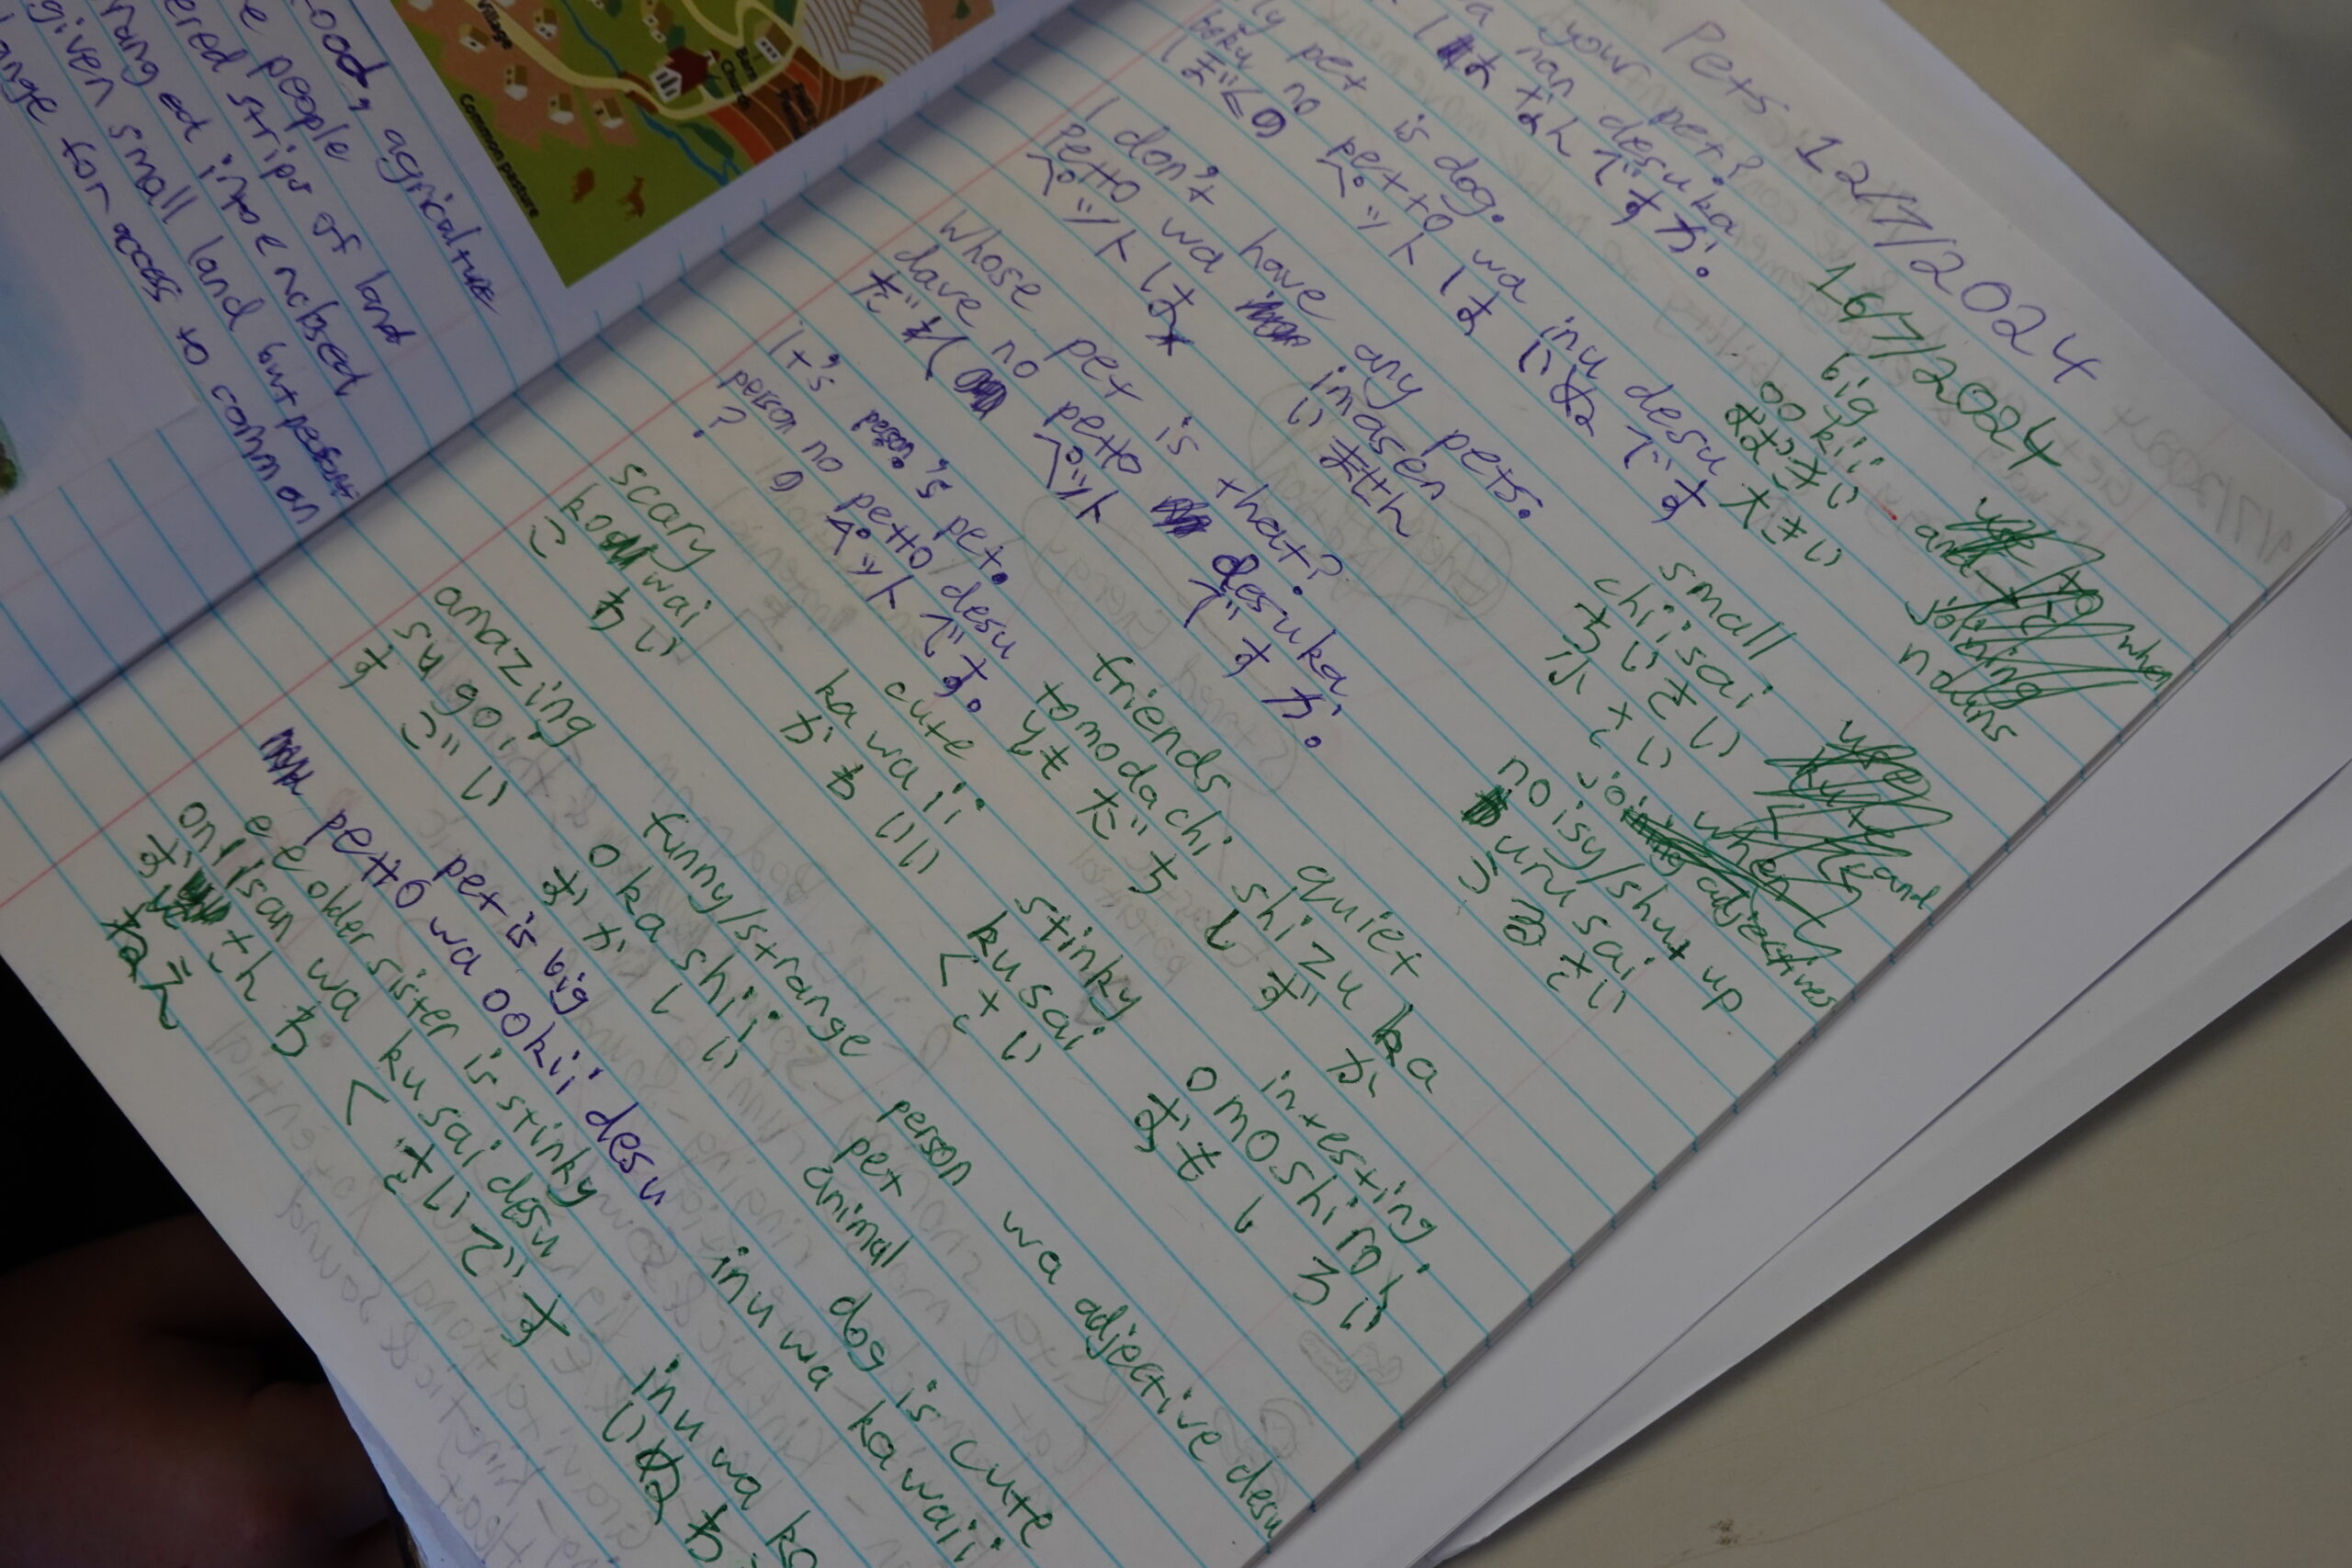 ood, agricalture
e people
ered strips of land
rang ed into enclosed
given small land but peasant
ange for access to common
Village
Church
Barn
Common pasture
Pets 12/7/2024
your pet?
a nan desuka
は なん ですか。
My pet is dog.
boku no petto wa inu desu
ぼくの ペット は いぬ です
I don't have any pets.
Petto wa imasen
ペット は いません
Whose pet is that?
dare no petto desuka
だれ ペット ですか。
It's person's pet.
person no petto desu
? の ペット です。
16/7/2024
big
oo kii
おおきい 大きい
small
chiisai
ちいさい
小さい
and
joining
nouns
when
joining adjectives
noisy/shut up
urusai
うるさい
friends
tomodachi
ともだち
quiet
shizuka
しずか
scary
kowai
こわい
cute
kawaii
かわいい
stinky
kusai
くさい
intesting
omoshiroi
おもしろい
amazing
sugoi
すごい
funny/strange
okashii
おかしい
person wa adjective desu
pet
animal
pet is big
petto wa ookii desu
dog is cute
inu wa kawaii
older sister is stinky
wa kusai desu
くさいです
inu wa ka
いぬ わ